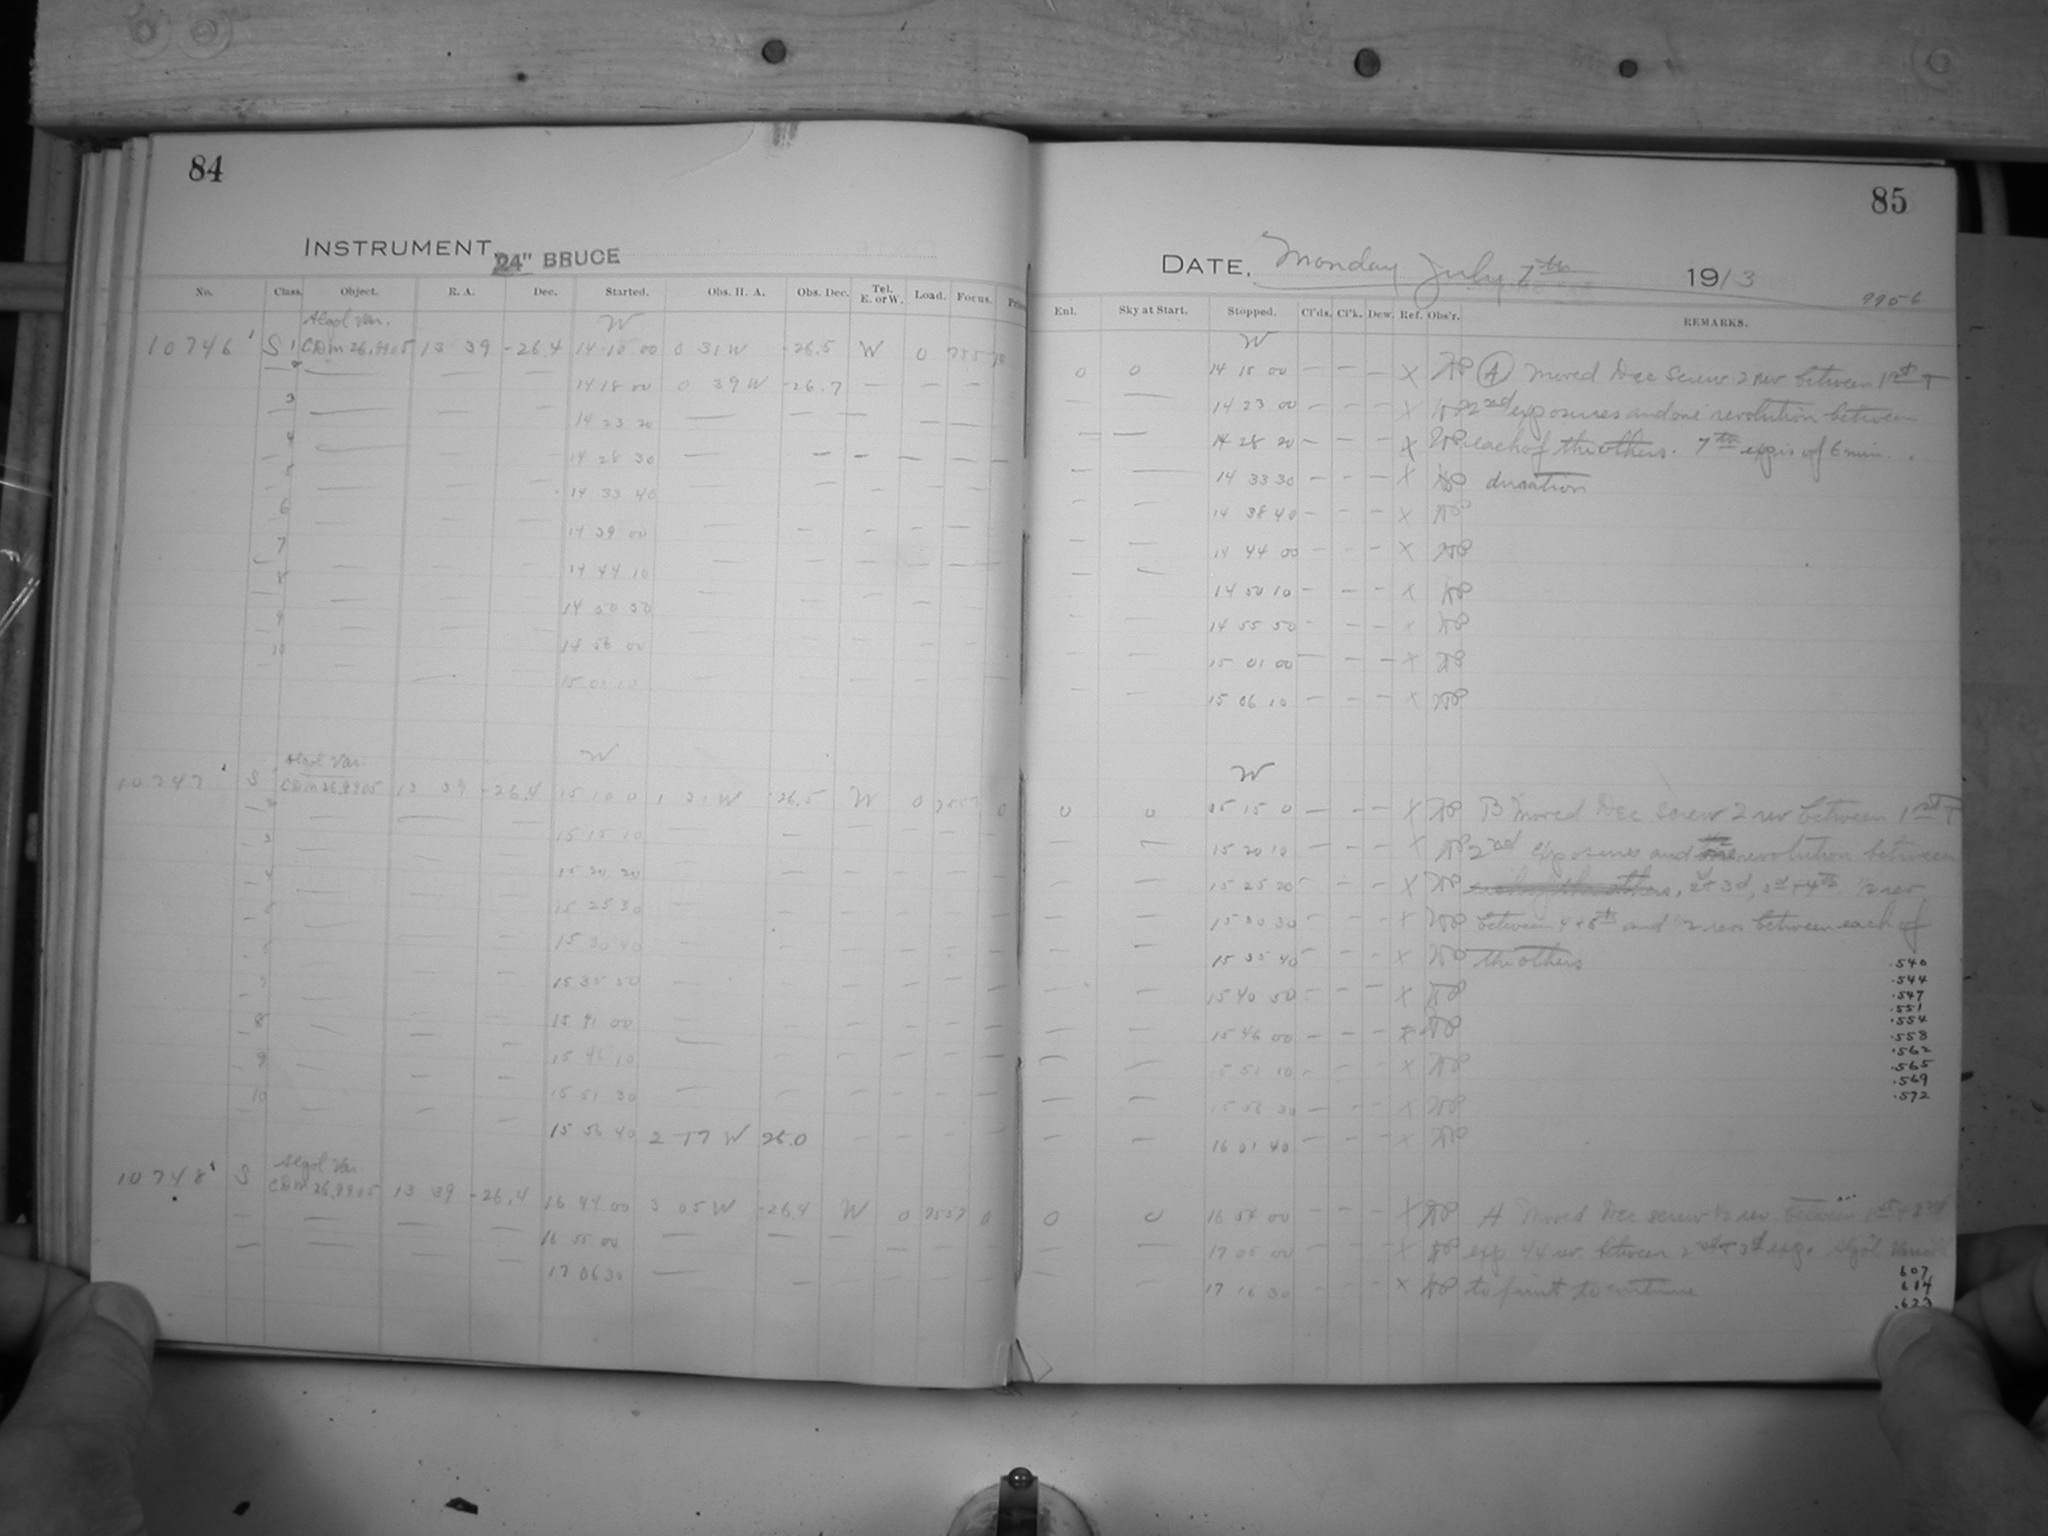 84
INSTRUMENT 24" BRUCE
No. Class. Object. R. A. Dec. Started. Obs. H. A. Obs. Dec. Tel. E. or W. Load. Focus.
Algol Var. W
10746 S 1 CDM 26.9905 13 39 -26.4 14 10 00 0 31 W -26.5 W 0
2 — — — 14 18 00 0 39 W -26.7 — — —
3 — — — 14 23 20 — — — — —
4 — — — 14 28 30 — — — — —
5 — — — 14 33 40 — — — — —
6 — — — 14 39 00 — — — — —
7 — — — 14 44 10 — — — — —
8 — — — 14 50 30 — — — — —
9 — — — 14 56 00 — — — — —
10 — — — 15 01 10 — — — — —
Algol Var. W
10747 S CDM 26.9905 13 39 -26.4 15 10 0 1 31 W -26.5 W 0 0
2 — — — 15 15 10 — — — — —
3 — — — 15 20 20 — — — — —
4 — — — 15 25 30 — — — — —
5 — — — 15 30 40 — — — — —
6 — — — 15 35 50 — — — — —
7 — — — 15 41 00 — — — — —
8 — — — 15 46 10 — — — — —
9 — — — 15 51 30 — — — — —
10 — — — 15 56 40 2 17 W 26.0 — — —
Algol Var.
10748 S CDM 26.9905 13 39 -26.4 16 44 00 3 05 W -26.4 W 0 0
— — — — 16 55 00 — — — — —
— — — — 17 06 30 — — — — —
85
DATE, Monday July 7th 1913
9956
Enl. Sky at Start. Stopped. Cl'ds. Cl'k. Dew. Ref. Obs'r. REMARKS.
W
0 0 14 15 00 — — — X A Moved Dec screw 2 rev between 1st +
— — 14 23 00 — — — X 2nd exposures and one revolution between
— — 14 28 20 — — — X each of the others. 7th exp is of 6 min.
— — 14 33 30 — — — X duration
— — 14 38 40 — — — X
— — 14 44 00 — — — X
— — 14 50 10 — — — X
— — 14 55 50 — — — X
— — 15 01 00 — — — X
— — 15 06 10 — — — X
W
0 0 15 15 0 — — — X B Moved Dec screw 2 rev between 1st +
— — 15 20 10 — — — X 2nd exposures and revolution between
— — 15 25 20 — — — X each of the others, 2d + 3d, 3d + 4th 1/2 rev
— — 15 30 30 — — — X between 4 + 5th and 1/2 rev between each of
— — 15 35 40 — — — X the others
— — 15 40 50 — — — X
— — 15 46 00 — — — X
— — 15 51 10 — — — X
— — 15 56 30 — — — X
— — 16 01 40 — — — X
.540
.544
.547
.551
.554
.558
.562
.565
.569
.572
0 0 16 54 00 — — — X A Moved Dec screw 1/2 rev between 1st + 2nd
— — 17 05 00 — — — X exp 1/4 rev between 2nd + 3d exp. Algol
— — 17 16 30 — — — X to faint to continue
607
614
.623